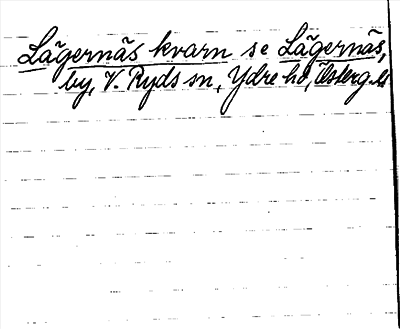 Lägernäs kvarn se Lägernäs,
by, V. Ryds sn, Ydre hd, Österg.